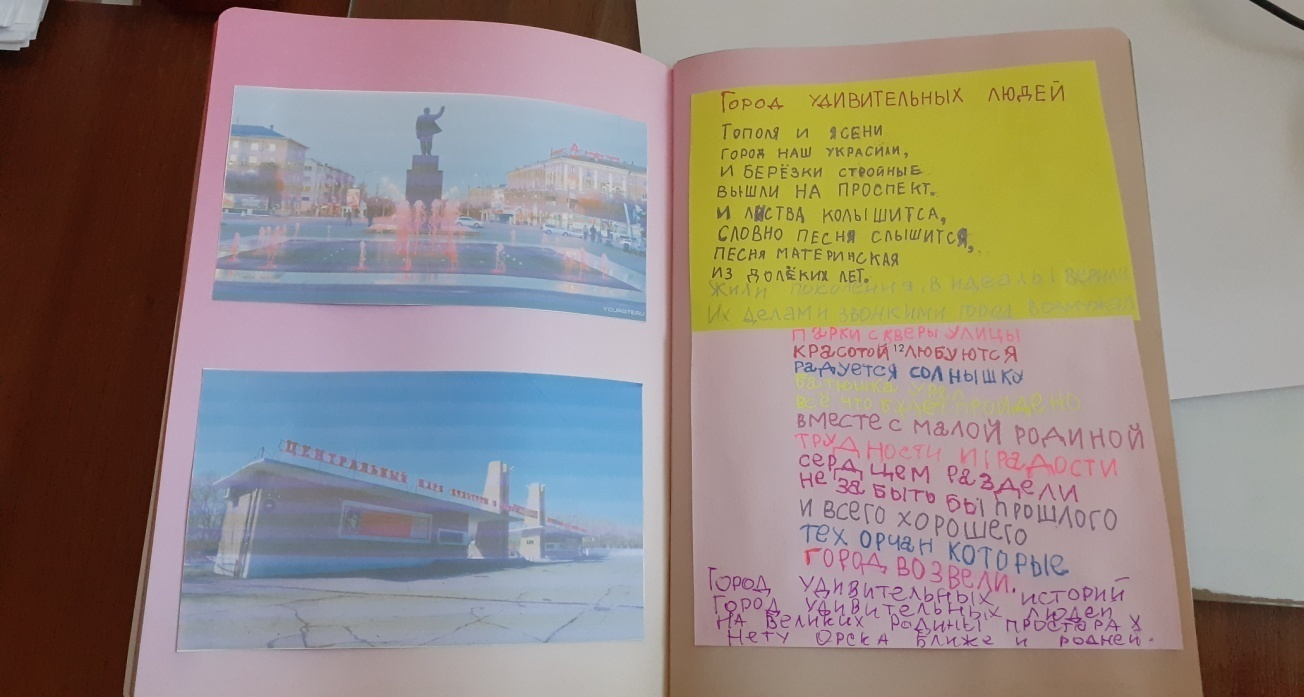 YOUROTE.RU
ЦЕНТРАЛЬНЫЙ ПАРК КУЛЬТУРЫ И
ГОРОД УДИВИТЕЛЬНЫХ ЛЮДЕЙ
ТОПОЛЯ И ЯСЕНИ
ГОРОД НАШ УКРАСИЛИ,
И БЕРЁЗКИ СТРОЙНЫЕ
ВЫШЛИ НА ПРОСПЕКТ.
И ЛИСТВА КОЛЫШИТСА,
СЛОВНО ПЕСНЯ СЛЫШИТСЯ,
ПЕСНЯ МАТЕРИНСКАЯ
ИЗ ДОЛЁКИХ ЛЕТ.
Жили поколения, в идеалы верили
Их делами звонкими город возмужал
ПАРКИ СКВЕРЫ УЛИЦЫ
КРАСОТОЙ 12 ЛЮБУЮТСЯ
РАДУЕТСЯ СОЛНЫШКУ
батюшка Урал
всё что будет пройдено
ВМЕСТЕ С МАЛОЙ РОДИНОЙ
ТРУДНОСТИ И РАДОСТИ
СЕРДЦЕМ РАЗДЕЛИ
НЕ ЗАБЫТЬ БЫ ПРОШЛОГО
И ВСЕГО ХОРОШЕГО
ТЕХ ОРЧАН КОТОРЫЕ
ГОРОД ВОЗВЕЛИ.
ГОРОД УДИВИТЕЛЬНЫХ ИСТОРИЙ
ГОРОД УДИВИТЕЛЬНЫХ ЛЮДЕЙ
НА ВЕЛИКИХ РОДИНЫ ПРОСТОРАХ
НЕТУ ОРСКА БЛИЖЕ И РОДНЕЙ.